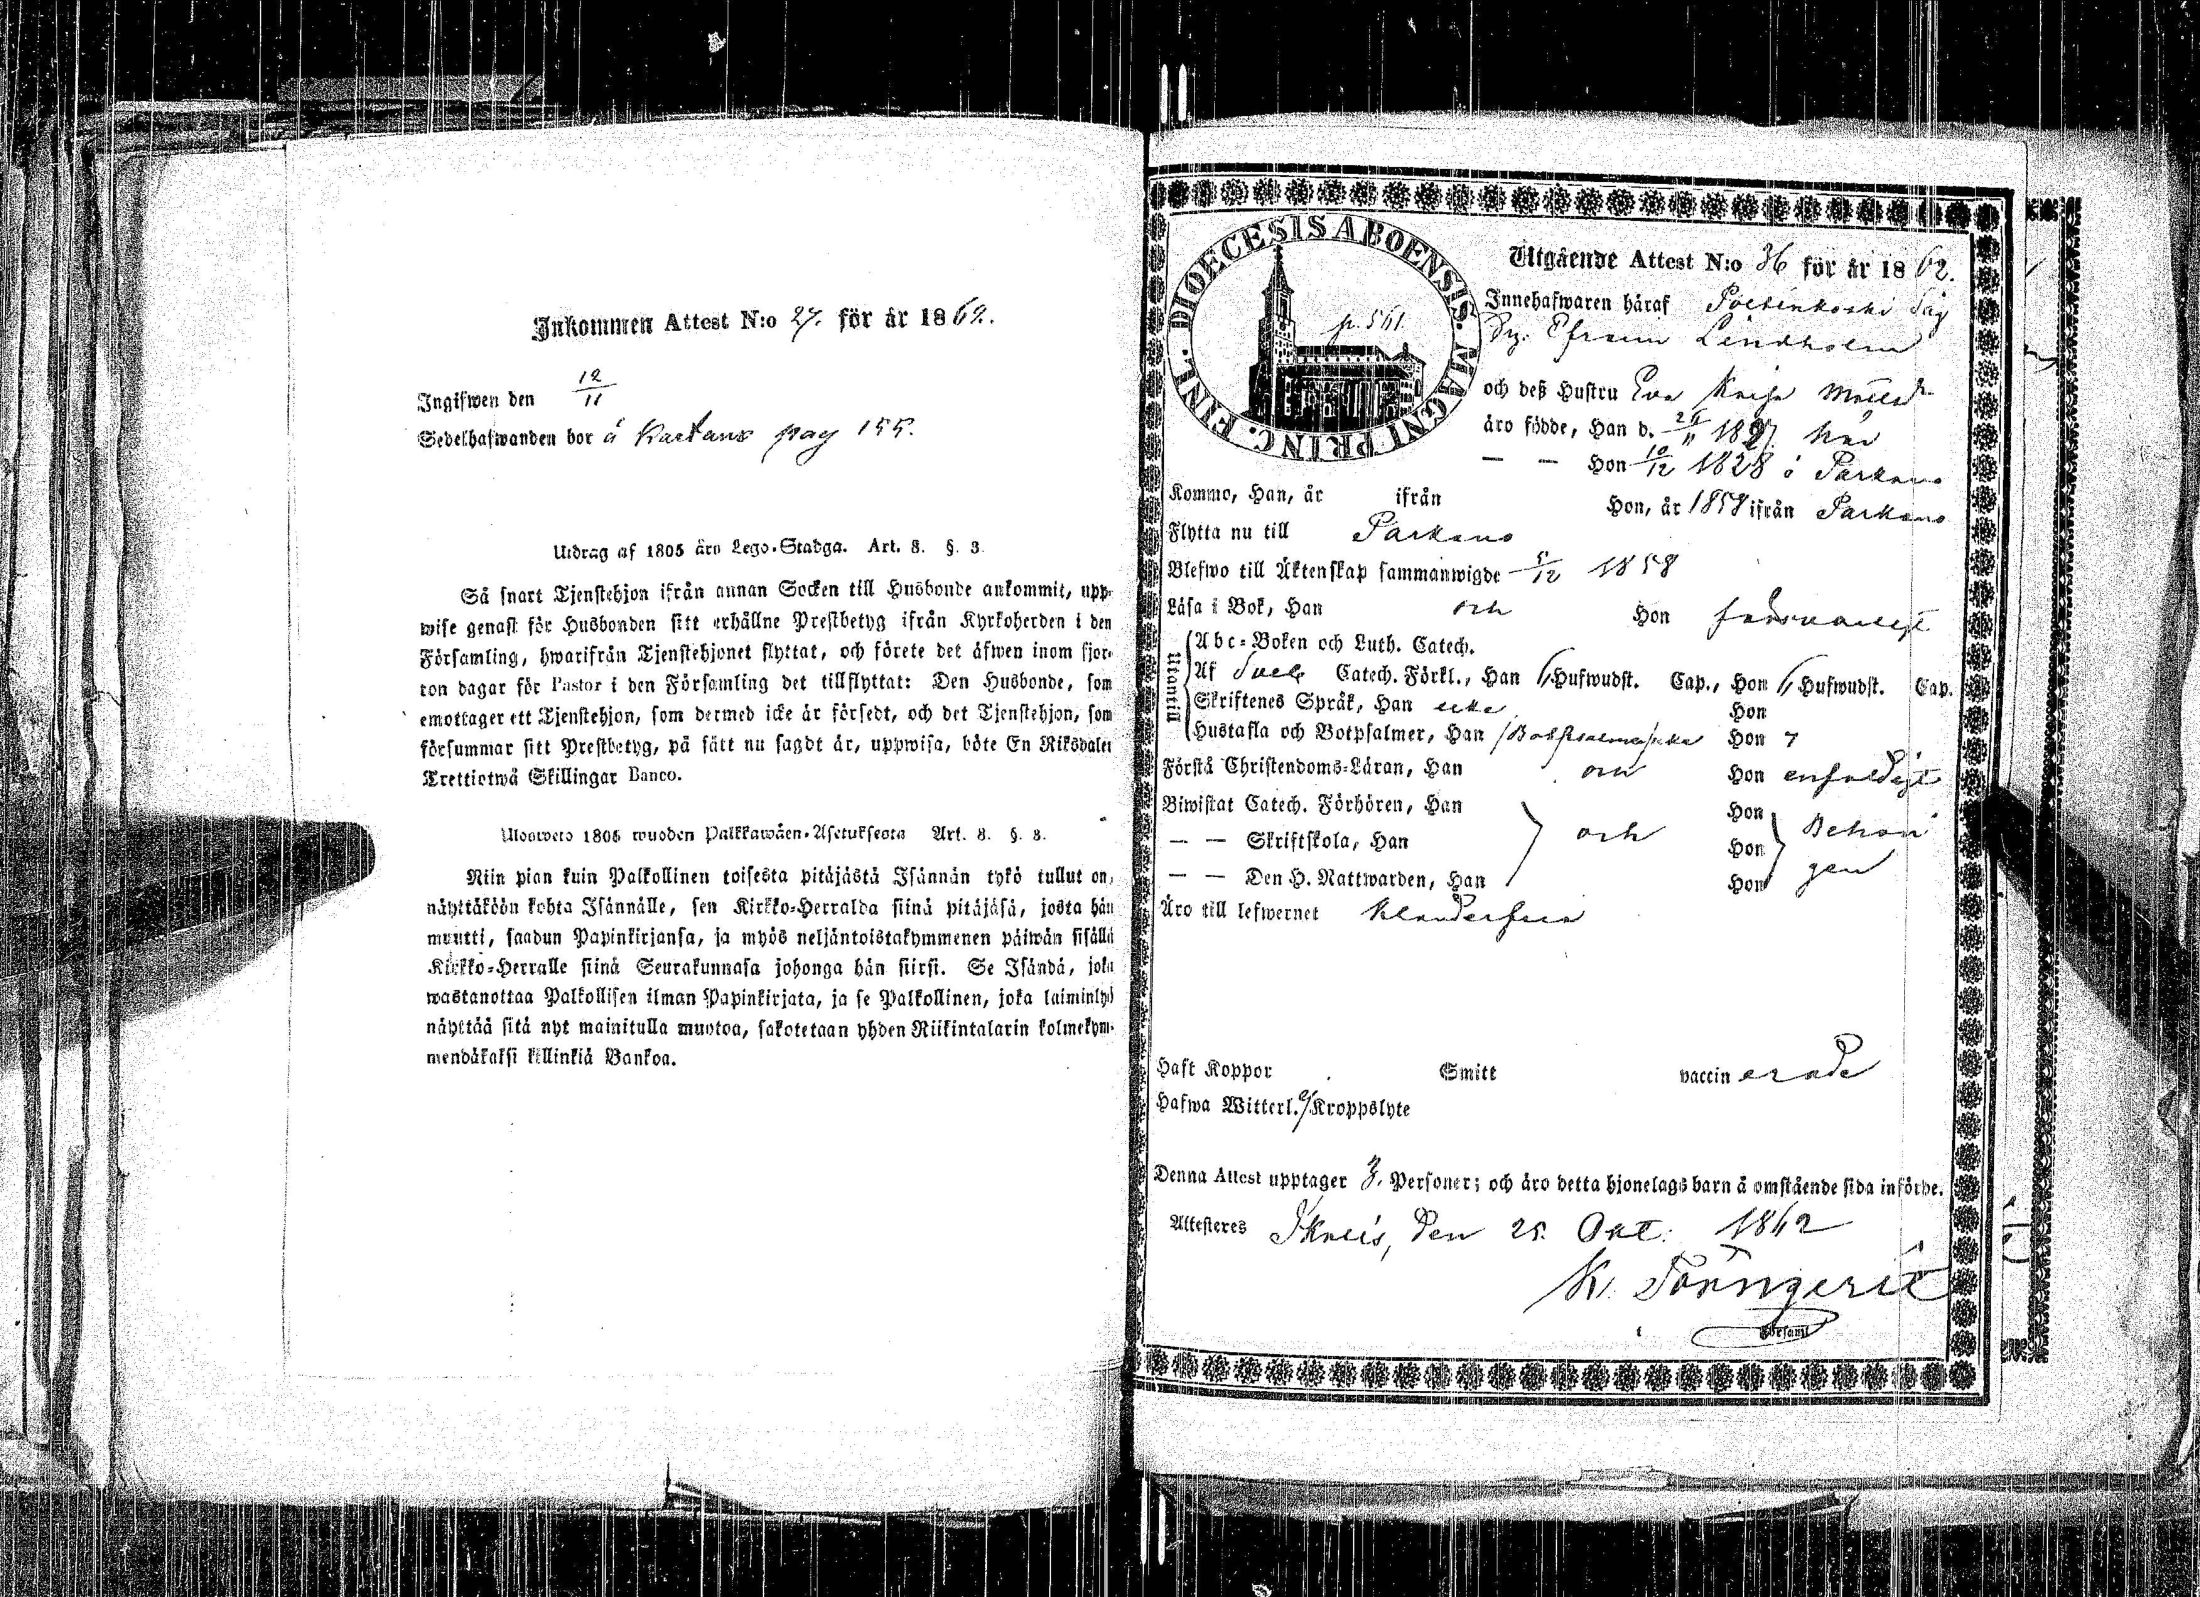 Inkommen Attest N:o 27. för år 1862.
Ingifwen den 12/11
Sedelhafwanden bor å Kartano pag 155.
Utdrag af 1805 års Lego-Stadga. Art. 8. §. 3.
Så snart Tjenstehjon ifrån annan Socken till Husbonde ankommit, upp-
wise genast för Husbonden sitt erhållne Prestbetyg ifrån Kyrkoherden i den
Församling, hwarifrån Tjenstehjonet flyttat, och förete det äfwen inom fjor-
ton dagar för Pastor i den Församling det tillflyttat: Den Husbonde, som
emottager ett Tjenstehjon, som dermed icke är försedt, och det Tjenstehjon, som
försummar sitt Prestbetyg, på sätt nu sagdt är, uppwisa, böte En Riksdaler
Trettiotwå Skillingar Banco.
Ulosweto 1805 wuoden Palkkawäen-Asetuksesta Art. 8. §. 3.
Niin pian kuin Palkollinen toisesta pitäjästä Isännän tykö tullut on,
näyttäköön kohta Isännälle, sen Kirkko-Herralda siinä pitäjäsä, josta hän
muutti, saadun Papinkirjansa, ja myös neljäntoistakymmenen päiwän sisällä
Kirkko-Herralle siinä Seurakunnasa johonga hän siirsi. Se Isändä, joka
wastanottaa Palkollisen ilman Papinkirjata, ja se Palkollinen, joka laiminlyö
näyttää sitä nyt mainitulla muotoa, sakotetaan yhden Riikintalarin kolmekym-
mendäkaksi killinkiä Bankoa.
DIOECESIS ABOENSIS. MAGNI PRINC. FINL.
p. 561.
Utgående Attest N:o 36 för år 1862.
Innehafwaren häraf
Efraim Lindholm
och deß Hustru Eva Kaisa
äro födde, Han d. 26/11 18 här
— — Hon 10/12 1828 i Parkano
Kommo, Han, år ifrån Hon, år 1858 ifrån Parkano
Flytta nu till Parkano
Blefwo till Äktenskap sammanwigde 5/12 1858
Läsa i Bok, Han och Hon försvarligt
Utantill
Abc-Boken och Luth. Catech.
Af Sveb. Catech. Förkl., Han 6 Hufwudst. Cap., Hon 6 Hufwudst. Cap.
Skriftenes Språk, Han icke Hon
Hustafla och Botpsalmer, Han Hon
Förstå Christendoms-Läran, Han och Hon enfaldigt
Biwistat Catech. Förhören, Han Hon
— — Skriftskola, Han och Hon behöri
— — Den H. Nattwarden, Han Hon gen
Äro till lefwernet klanderfria
Haft Koppor Smitt vaccinerade
Hafwa Witterl. ej Kroppslyte
Denna Attest upptager 3. Personer; och äro detta hjonelags barn å omstående sida införde.
Attesteres Ikalis, den 25. Okt. 1862
K.
Församl